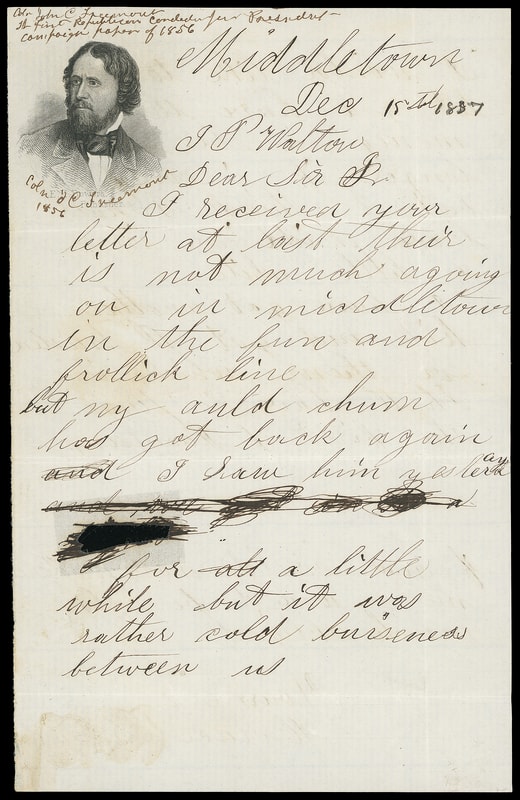 Coln John C. Freemont
the first Republican Candidate for President
Campaign paper of 1856
Coln J C Freemont
1856
Middletown
Dec 15th 1857
J P Walton
Dear Sir
I received your
letter at last their
is not much agoing
on in middletown
in the fun and
frollick line
but my auld chum
has got back again
and I saw him yesterday
and
for all a little
while but it was
rather cold buiseness
between us